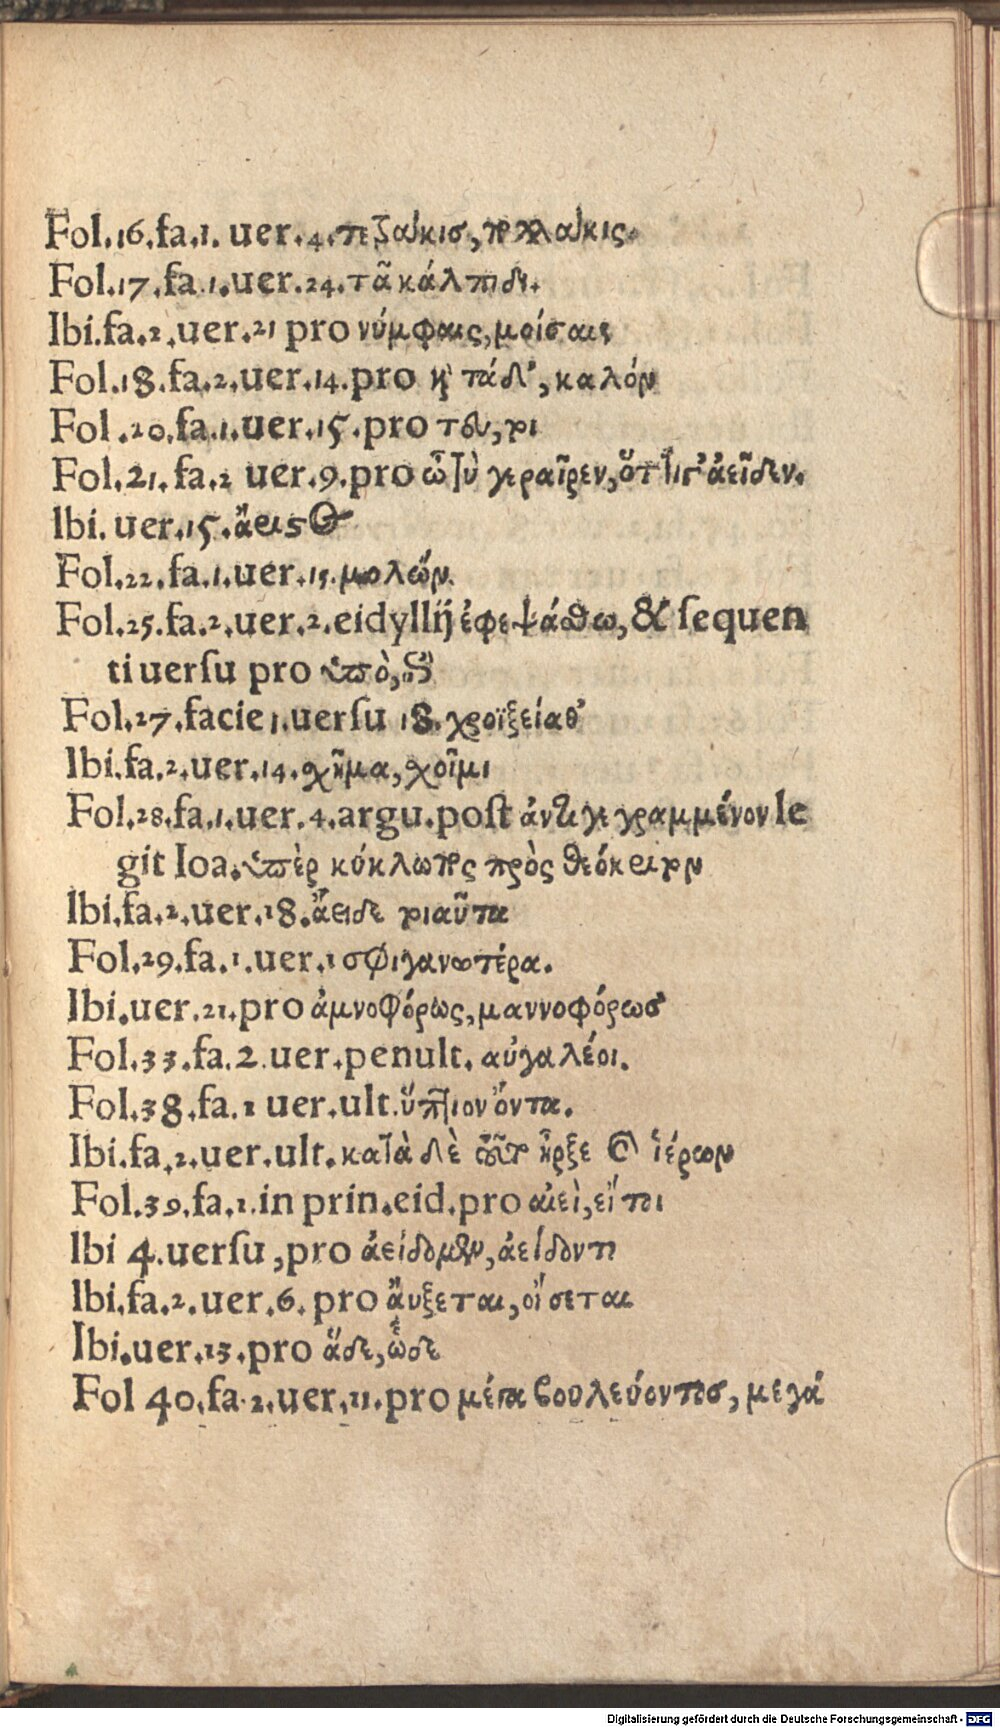 Fol.16.fa.1. uer.4.πεζαίκισ, πολλάκις.
Fol.17.fa.1.uer.24.τᾶ κάλπιδι.
Ibi.fa.2.uer.21 pro νύμφαις, μοίσαις
Fol.18.fa.2.uer.14.pro καλόν
Fol.20.fa.1.uer.15.pro τοι
Fol.21.fa.2 uer.9.pro γεραῖρεν, ἀείδεν.
Ibi. uer.15.ἄειςος
Fol.22.fa.1.uer.15.μολών.
Fol.25.fa.2.uer.2.eidyllij ἐφεψάθω, & sequen
ti uersu pro ὑπὸ,
Fol.27.facie 1.uersu 18.χροϊξείαθ'
Ibi.fa.2.uer.14.χῆμα, χοῖμι
Fol.28.fa.1.uer.4.argu.post ἀντιγεγραμμένον le
git Ioa.ὑπὲρ κύκλωπος πρὸς θεόκριτον
Ibi.fa.2.uer.18.ἄειδε τοιαῦτα
Fol.29.fa.1.uer.1 σφιγανωτέρα.
Ibi.uer.21.pro ἀμνοφόρως, μαννοφόρωσ
Fol.33.fa.2.uer.penult. αὐγαλέοι.
Fol.38.fa.1 uer.ult.ὕπτιον ὄντα.
Ibi.fa.2.uer.ult.κατὰ δὲ ἦρξε ὁ ἱέρων
Fol.39.fa.1.in prin.eid.pro αἰεὶ, εἴ τοι
Ibi 4.uersu, pro ἀείδομεν, ἀείδοντι
Ibi.fa.2.uer.6. pro ἄυξεται, οἴσεται
Ibi.uer.13.pro ἅδε, ὧδε
Fol 40.fa.2.uer.11.pro μέγα βουλεύοντοσ, μεγά